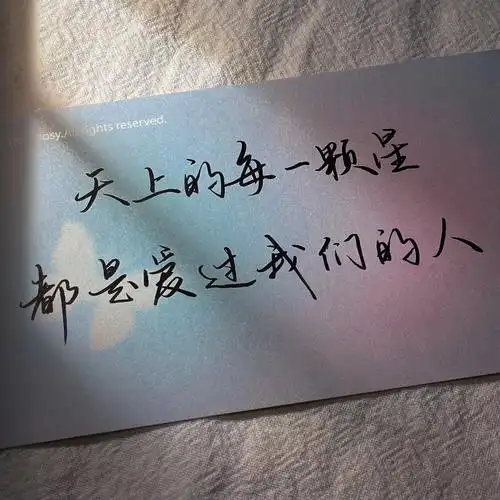 rights reserved.
天上的每一颗星
都是爱过我们的人